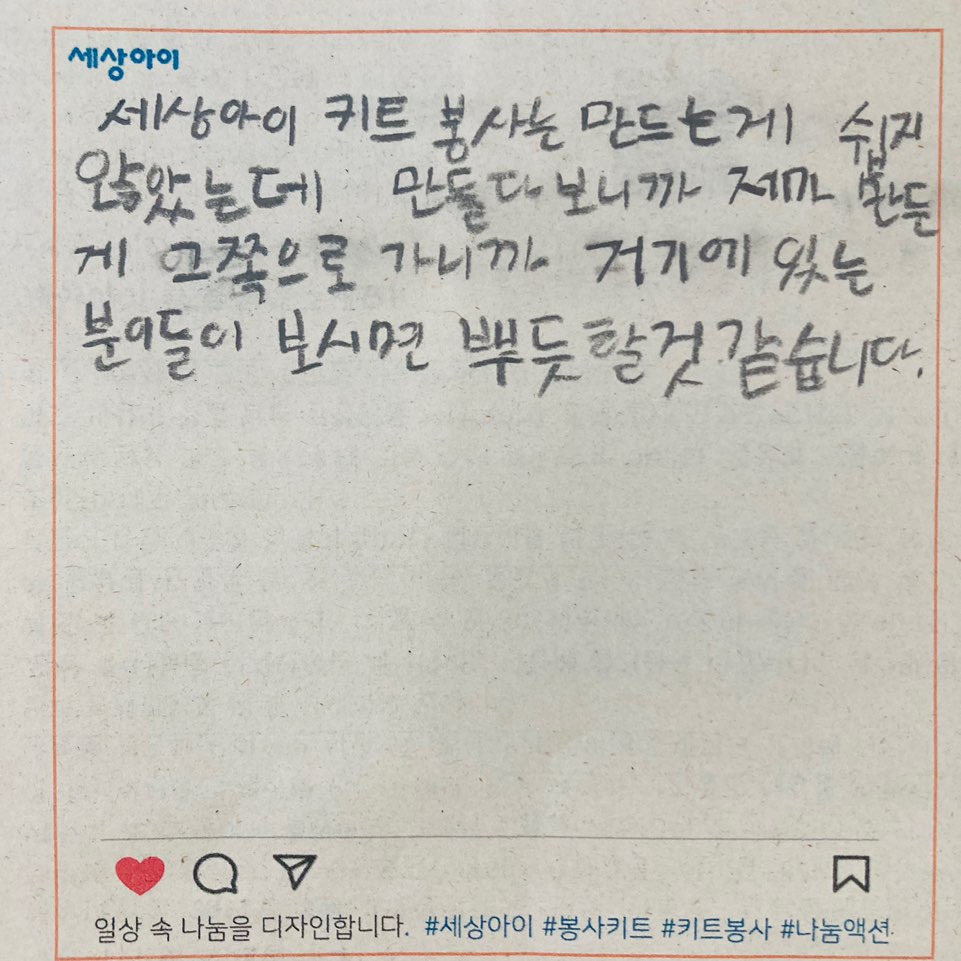 세상아이
세상아이 키트 봉사는 만드는게 쉽지
않았는데 만들다보니까 제까 만든
게 그쪽으로 가니까 저기에 있는
분이들이 보시면 뿌듯할것 같습니다.
일상 속 나눔을 디자인합니다. #세상아이 #봉사키트 #키트봉사 #나눔액션